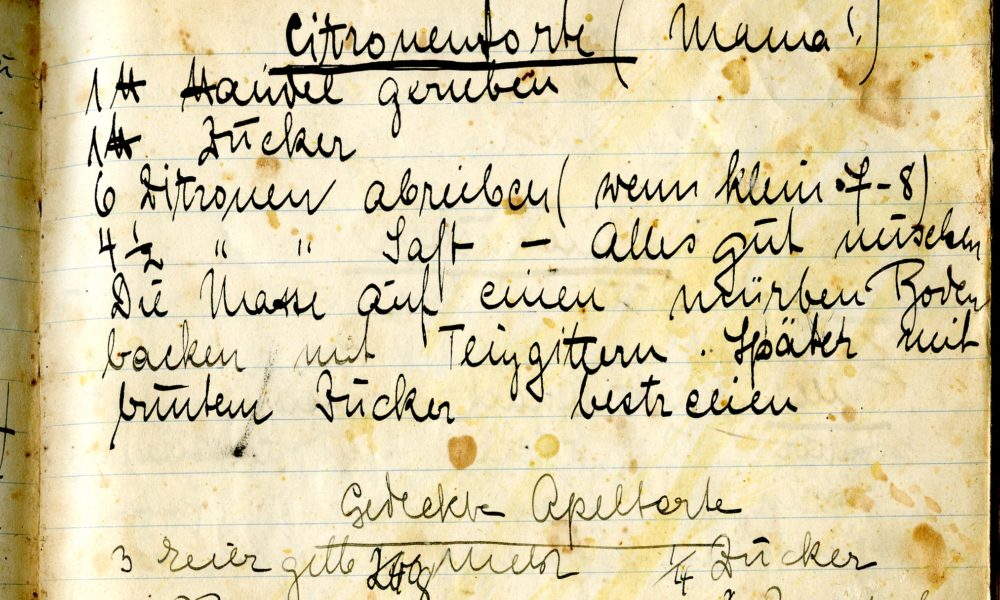 Citronentorte (Mama!)
1 ℔ Mandel gerieben
1 ℔ Zucker
6 Zitronen abreiben (wenn klein 7-8)
4 ½ " " Saft - Alles gut mischen
Die Masse auf einen mürben Boden
backen mit Teiggittern. Später mit
buntem Zucker bestreuen
Gedeckte Apeltorte
3 Eier gelb Mehl ¼ Zucker